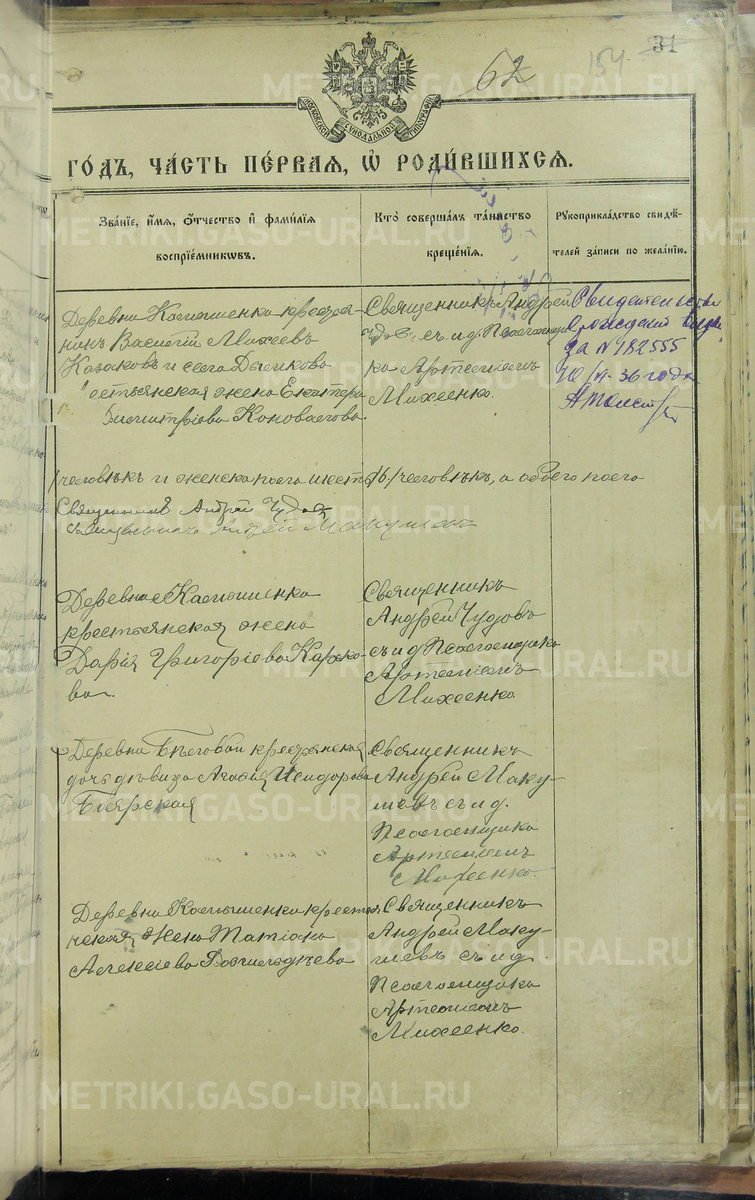 62
154
31
МОСКОВСКОЙ СѴНОДАЛЬНОЙ ТИПОГРАФІИ
ГО́ДЪ, ЧА́СТЬ ПЕ́РВАЯ, Ѡ҆ РОДИ́ВШИХСЯ.
Зва́ніе, и҆́мя, ѻ҆́тчество и҆ фами́лія
воспріе́мниковъ.
Кто̀ соверша́лъ та́инство
креще́нія.
Рꙋкоприкла́дство свидѣ́-
телей за́писи по жела́нію.
Деревни Калюшенка крестья-
нинъ Василій Михеевъ
Казаковъ и села
крестьянская жена Екатери
Димитріева Коновалова.
Священникъ Андрей
съ и.д. Псаломщи
ка Артеміемъ
Михеенко.
Свидетельство
о рождении выдан
за № 182555
10/ - 36 года
человѣкъ и женска пола шесть /6/ человѣкъ, а обоего пола
Священникъ Андрей Чудовъ
Деревни Калюшенка
крестьянская жена
Дарія Григоріева Карпо-
ва.
Священникъ
Андрей Чудовъ
съ и.д. Псаломщика
Артеміемъ
Михеенко
Деревни Бѣговой крестьянская
дочь дѣвица Агафія Исидорова
Боярская
Священникъ
Андрей Маку-
шевъ съ и.д.
Псаломщика
Артеміемъ
Михеенко.
Деревни Калюшенки крестья
нская жена Татіана
Алексіева
Священникъ
Андрей Маку-
шевъ съ и.д.
Псаломщика
Артеміемъ
Михеенко.
METRIKI.GASO-URAL.RU